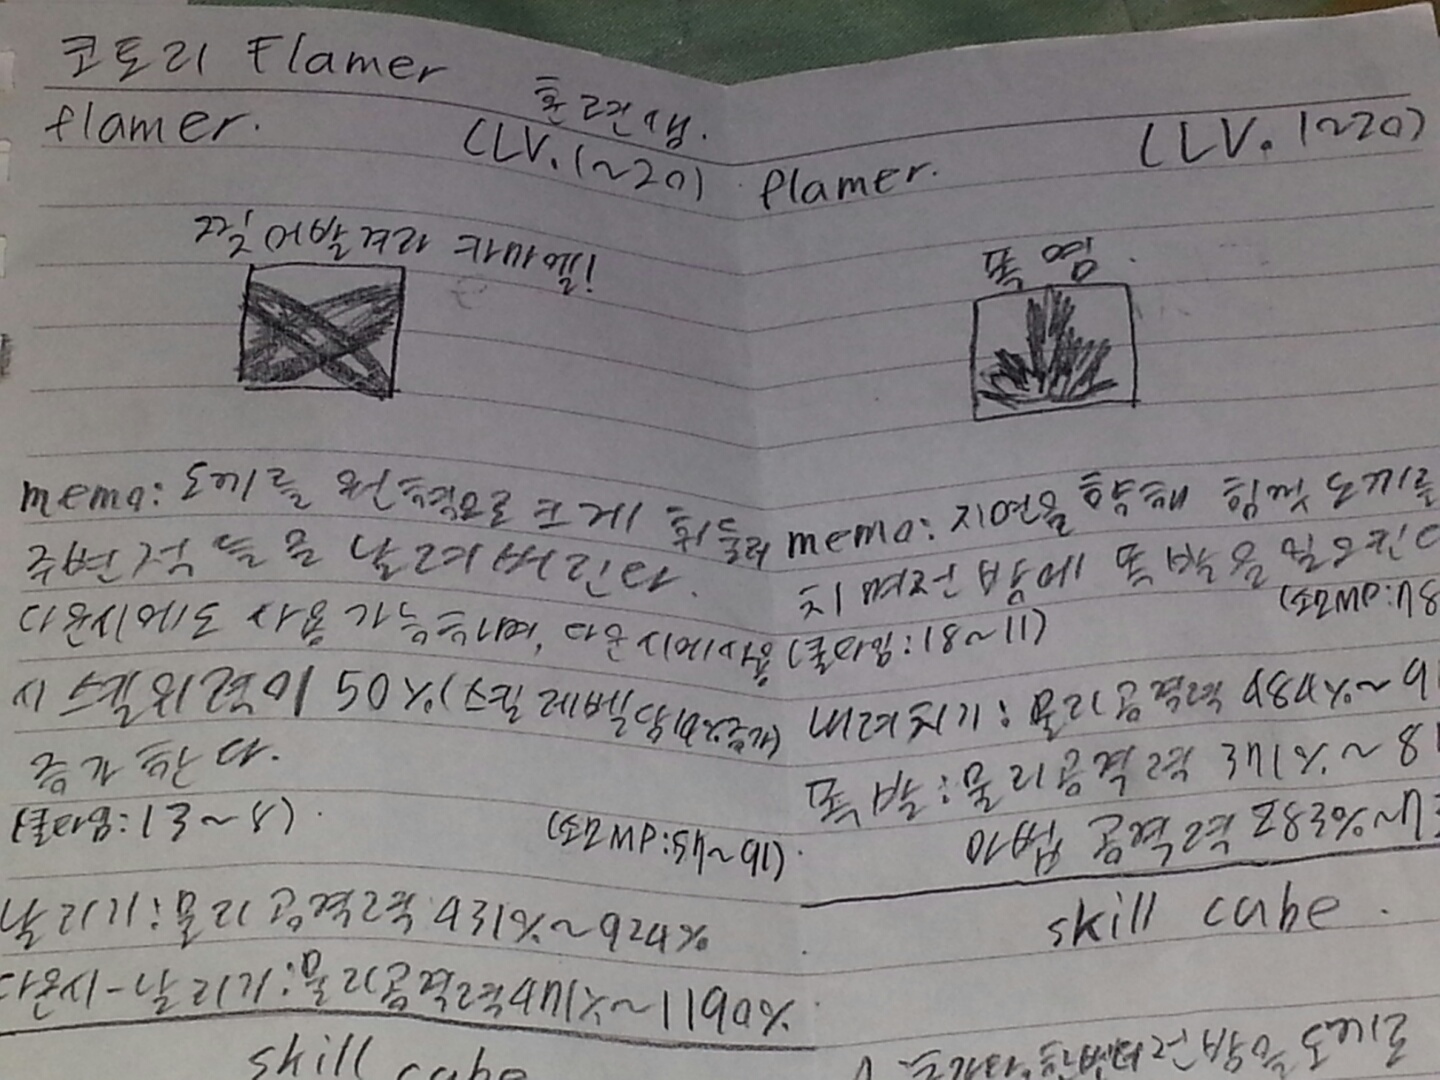 코토리 Flamer
훈련생.
flamer.
(LV.1~20)
찢어발겨라 카마엘!
memo: 도끼를 원형으로 크게 휘둘러
주변 적들을 날려버린다.
다운시에도 사용 가능하며, 다운시에 사용
시 스킬위력이 50%(스킬레벨당
증가한다.
(쿨타임:13~8)
(소모MP:57~91)
날리기:물리공격력 431%~924%
다운시-날리기:물리공격력 471%~1190%
skill cube
flamer.
(LV.1~20)
폭염.
memo: 지면을 향해 힘껏 도끼를
치며 전방에 폭발을 일으킨다
(소모MP:78
(쿨타임:18~11)
내려치기:물리공격력 484%~91
폭발:물리공격력 371%~81
마법 공격력 283%~7
skill cube.
전방을 도끼로